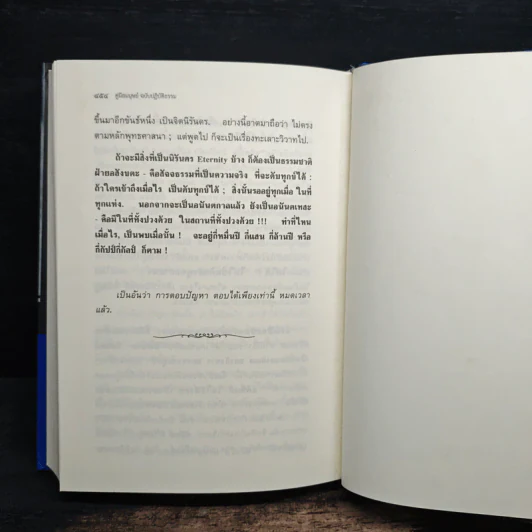 ๔๕๔ คู่มือมนุษย์ ฉบับปฏิบัติธรรม
ขึ้นมาอีกขันธ์หนึ่ง เป็นจิตนิรันดร. อย่างนี้อาตมาถือว่า ไม่ตรง
ตามหลักพุทธศาสนา ; แต่พูดไป ก็จะเป็นเรื่องทะเลาะวิวาทไป.
ถ้าจะมีสิ่งที่เป็นนิรันดร Eternity บ้าง ก็ต้องเป็นธรรมชาติ
ฝ่ายอสังขตะ - คือสัจจธรรมที่เป็นความจริง ที่จะดับทุกข์ได้ :
ถ้าใครเข้าถึงเมื่อไร เป็นดับทุกข์ได้ ; สิ่งนั้นรออยู่ทุกเมื่อ ในที่
ทุกแห่ง. นอกจากจะเป็นอนันตกาลแล้ว ยังเป็นอนันตเทสะ
- คือมีในที่ทั้งปวงด้วย ในสถานที่ทั้งปวงด้วย !!! ทำที่ไหน
เมื่อไร, เป็นพบเมื่อนั้น ! จะอยู่กี่หมื่นปี กี่แสน กี่ล้านปี หรือ
กี่กัปป์กี่กัลป์ ก็ตาม !
เป็นอันว่า การตอบปัญหา ตอบได้เพียงเท่านี้ หมดเวลา
แล้ว.